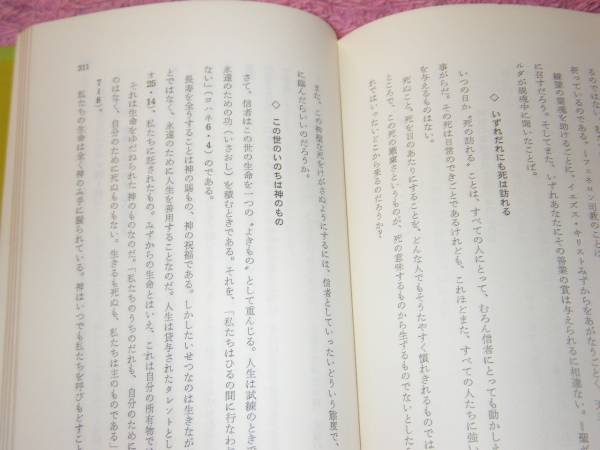 祈っているのである。（フェネロン司教のことば）
煉獄の霊魂を助けることに、イエズス・キリストみずからをあがなうごとく、天
に召すだろう。そしてまた、いずれあなたにその善業の賞は与えられるに相違ない。＝聖
ルダが脱魂中に聞いたことば。
◇ いずれだれにも死は訪れる
いつの日か“死の訪れる”ことは、すべての人にとって、むろん信者にとっても動かしえ
事がらだ。その死は日常のできごとであるけれども、これほどまた、すべての人たちに強い
えるものはない。
死ぬこと、死を目のあたりにすることを、どんな人でもそうたやすく慣れきれるものでは
ところで、この死の厳粛さというものが、死の意味するものから生ずるものでないとした
れではいったいどこから来るのだろうか？
また、この神秘な死をけがさぬようにするには、信者としていったいどういう態度で、
に臨んだらいいのだろうか。
◇ この世のいのちは神のもの
さて、信者はこの世の生命を一つの“よきもの”として重んじる。人生は試練のときで
永遠のための功（いさおし）を積むときである。それを、「私たちはひるの間に行なわ
ない」（ヨハネ6・4）のである。
長寿を全うすることは神の賜もの、神の祝福である。しかしたいせつなのは生きなが
とではなく、永遠のために人生を善用することなのだ。人生は貸与されたタレントとし
オ25・14、私たちに託されたもの。みずからの生命とはいえ、これは自分の所有物では
それは生命をゆだねられた神のものなのだ。「私たちのうちのだれも、自分のために
のはなく、自分のために死ぬものもない。生きるも死ぬも、私たちは主のものである」
7−8。
私たちの生命は全く神のみ手に握られている。神はいつでも私たちを呼びもどすこと
311